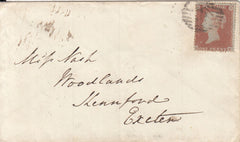 Miss Nash
Woodlands
Kennford
Exeter